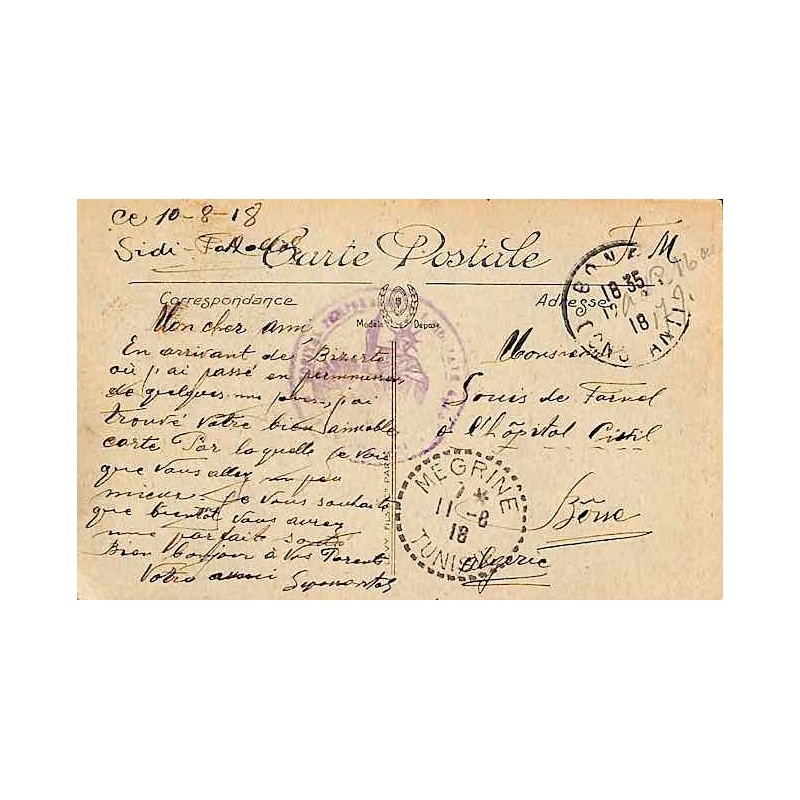 ce 10-8-18
Sidi-Fatallah
Carte Postale
F M
Correspondance
Adresse
Modèle Déposé
Mon cher ami
En arrivant de Bizerte
où j'ai passé en permission
de quelques jours, j'ai
trouvé votre bien aimable
carte Par laquelle je vois
que vous allez un peu
mieux. Je vous souhaite
que bientôt vous aurez
une parfaite santé
Bien bonjour à vos Parents
Votre ami
Monsieur
Louis de
à l'hôpital Civil
Bône
Algérie
BONE
18 35
18
CONSTANTINE
MEGRINE
7 *
11 -8
18
TUNISIE
PARIS